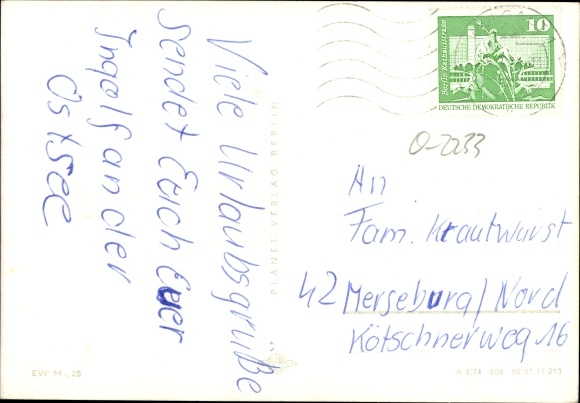 Viele Urlaubsgrüße
sendet Euch Euer
Ingolf an der
Ostsee
PLANET-VERLAG BERLIN
EVP M -,25
10
Berlin: Rathausstraße
DEUTSCHE DEMOKRATISCHE REPUBLIK
O-2233
An
Fam. Krautwurst
42 Merseburg/Nord
Kötschnerweg 16
A 6/74 606 02 01 11 210